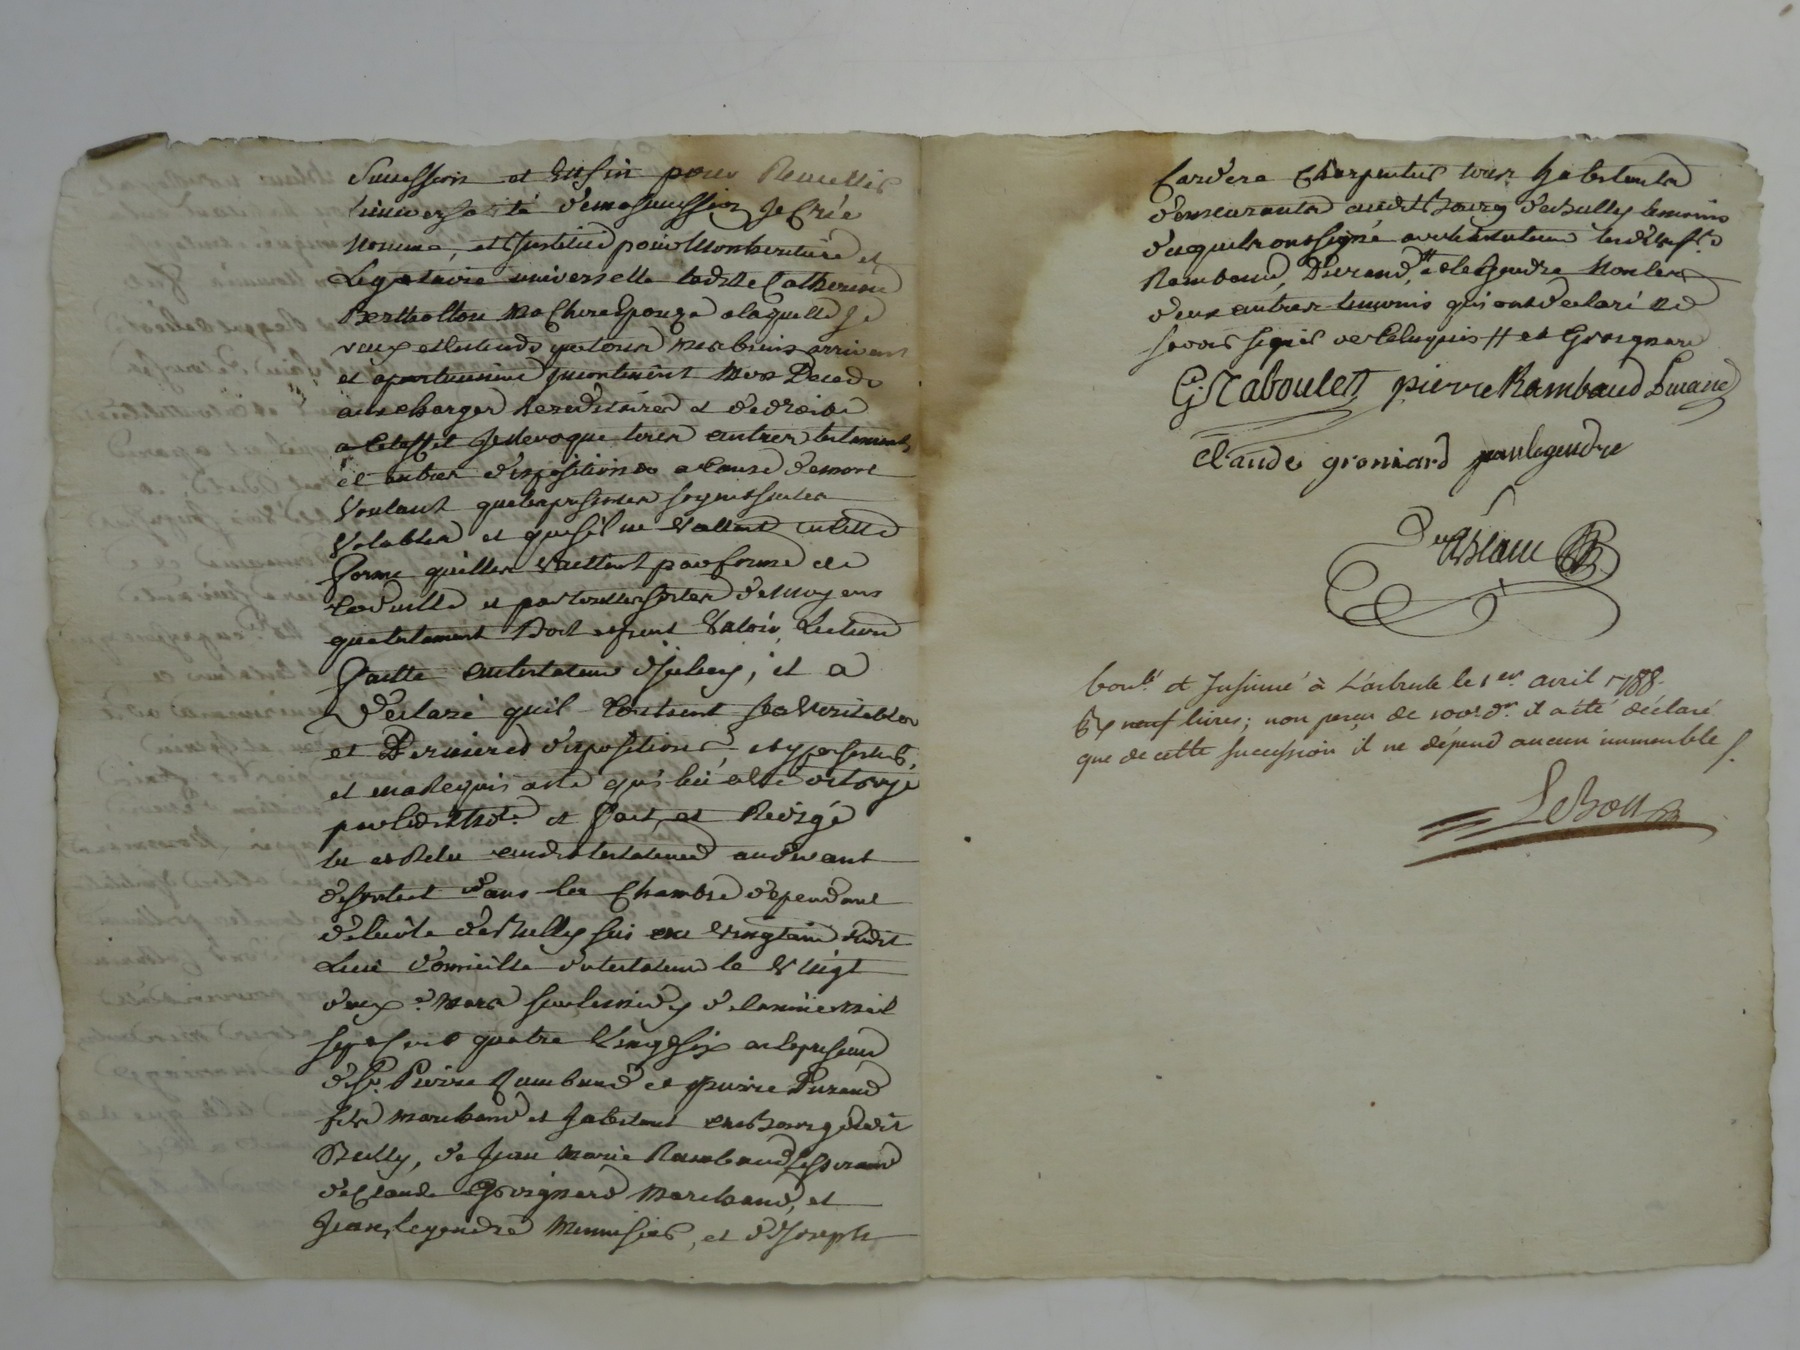 Succession et Enfin pour Recueillir
L'universalité de ma succession Je Crée
Nomme, et Institue pour Mon heritiere et
Legataire universelle ladite Catherine
Bertholton Ma Chere Epouze a laquelle Je
veux et entends que tous mes biens arrivent
et apartiennent incontinent Mon Decedé
aux charges hereditaires et de droit
a Cet effet Je Revoque tous autres testaments
et autres dispositions a Cause de mort
Voulant que les presentes soyent seules
Valables et que si ne Vallent en cette
forme qu'elles Vaillent par forme de
Codicille et par toutes sortes de moyens
que testament Doit et peut Valoir, Lecture
faitte au testateur d'icelluy, il a
Déclaré qu'il Contient ses Veritables
et Dernieres dispositions et y persiste,
et en a Requis acte qui lui a été octroyé
par ledit Note. et fait et Redigé
lu et Relu audit testateur au devant
dans la Chambre dependant
de Bully sur
Lieu domicille du testateur le Vingt
deux e. Mars sur le midy de l'année mil
sept cent quatre Vingt six en la presence
de Sr. Pierre Rambaud et Pierre Durand
fils Marchand et habitant au Bourg dudit
Bully, de Jean Marie Rambaud
de Claude Groignard Marchand, et
Jean Legendre Menuisier, et de Joseph
Cardera Charpentier tous habitants
demeurants audit Bourg de Bully temoins
desquels ont signé avec le testateur lesdits Srs.
Rambaud, Durand, # et Legendre Non les
deux autres temoins qui ont declaré ne
savoir signer de Ce Enquis # et Groignard
G. Raboulett pierre Rambaud Durand
Claude groniard jean legendre
Dublanc
Conlé et Insinué à L'arbresle le 1er. avril 1788.
Rx neuf livres; non perçu de 100e dr. il a été déclaré
que de cette succession il ne dépend aucun immeuble
LeBon